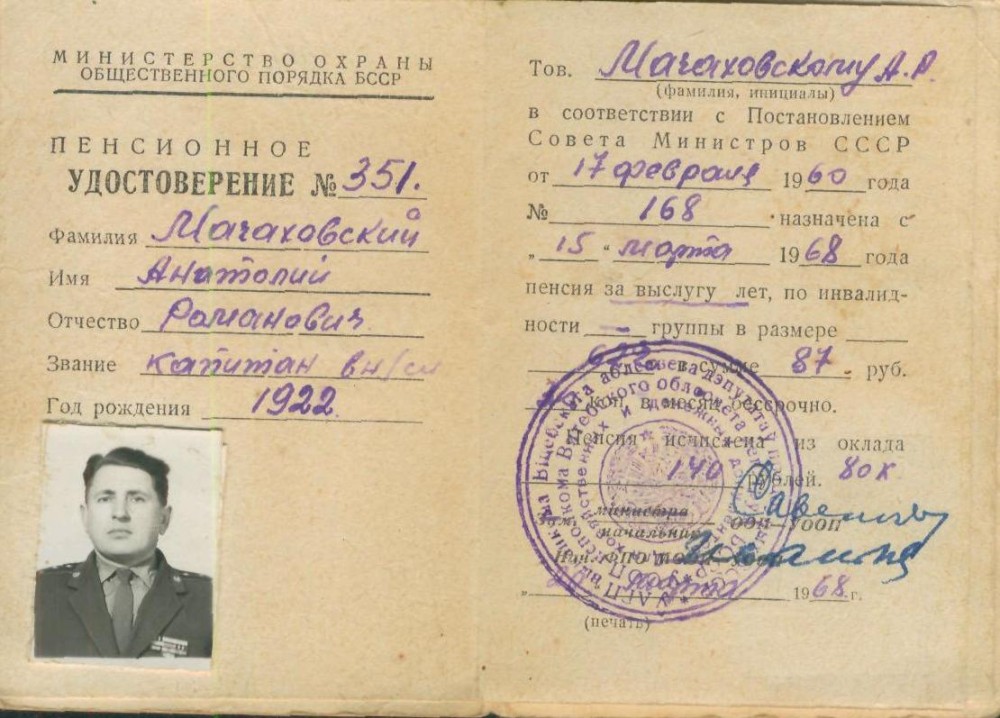 МИНИСТЕРСТВО ОХРАНЫ
ОБЩЕСТВЕННОГО ПОРЯДКА БССР
ПЕНСИОННОЕ
УДОСТОВЕРЕНИЕ № 351.
Фамилия Мачаховский
Имя Анатолий
Отчество Романович
Звание капитан вн/сл
Год рождения 1922.
Тов. Мачаховскому А.Р.
(фамилия, инициалы)
в соответствии с Постановлением
Совета Министров СССР
от 17 февраля 1960 года
№ 168 назначена с
„15 " марта 1968 года
пенсия за выслугу лет, по инвалид-
ности - группы в размере
в сумме 87 руб.
коп. в месяц бессрочно.
Пенсия исчислена из оклада
140 рублей. 80к
Зам. министра
начальник ООП-УООП
марта 1968 г.
(печать)